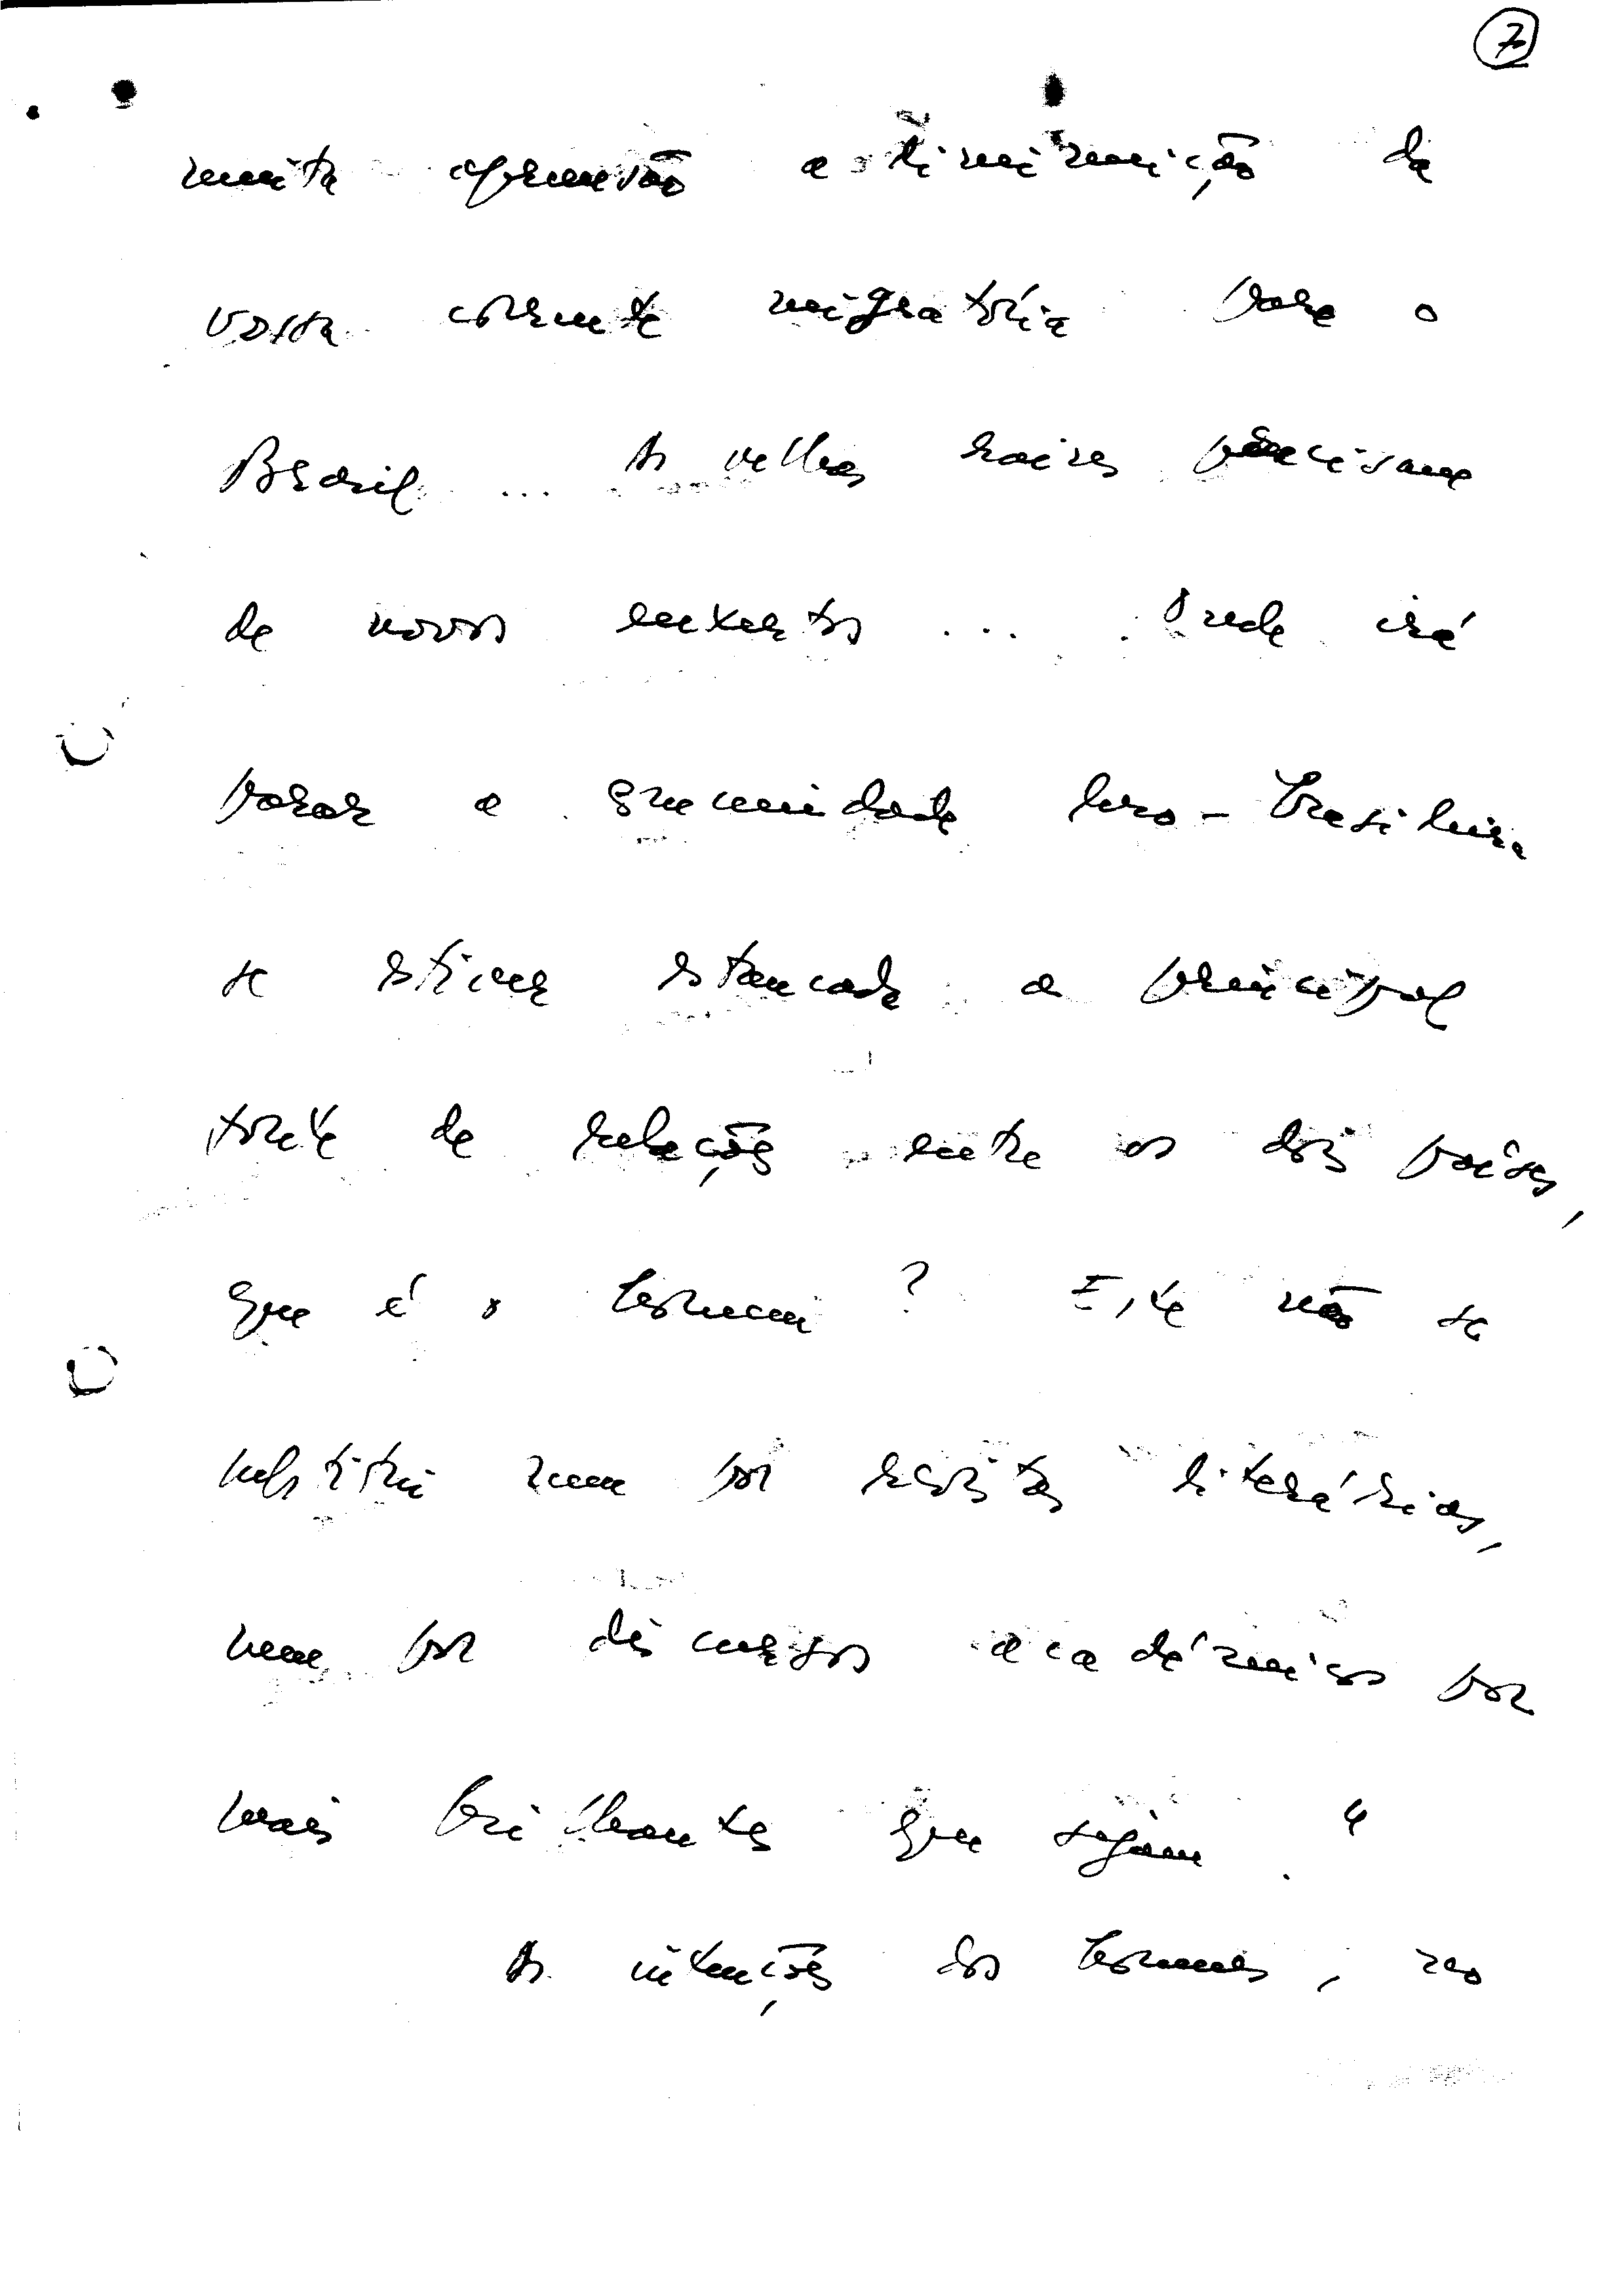 7
muita apreensão a diminuição da
vossa corrente migratória para o
Brasil ... As velhas raízes precisam
de novos enxertos ... Onde irá
parar a comunidade luso-brasileira
se estiver estancada a principal
fonte de relações entre os dois países,
que é o homem ? Este não se
substitui nem por revistas literárias,
nem por discursos académicos por
mais brilhantes que sejam."
As intenções dos homens, no